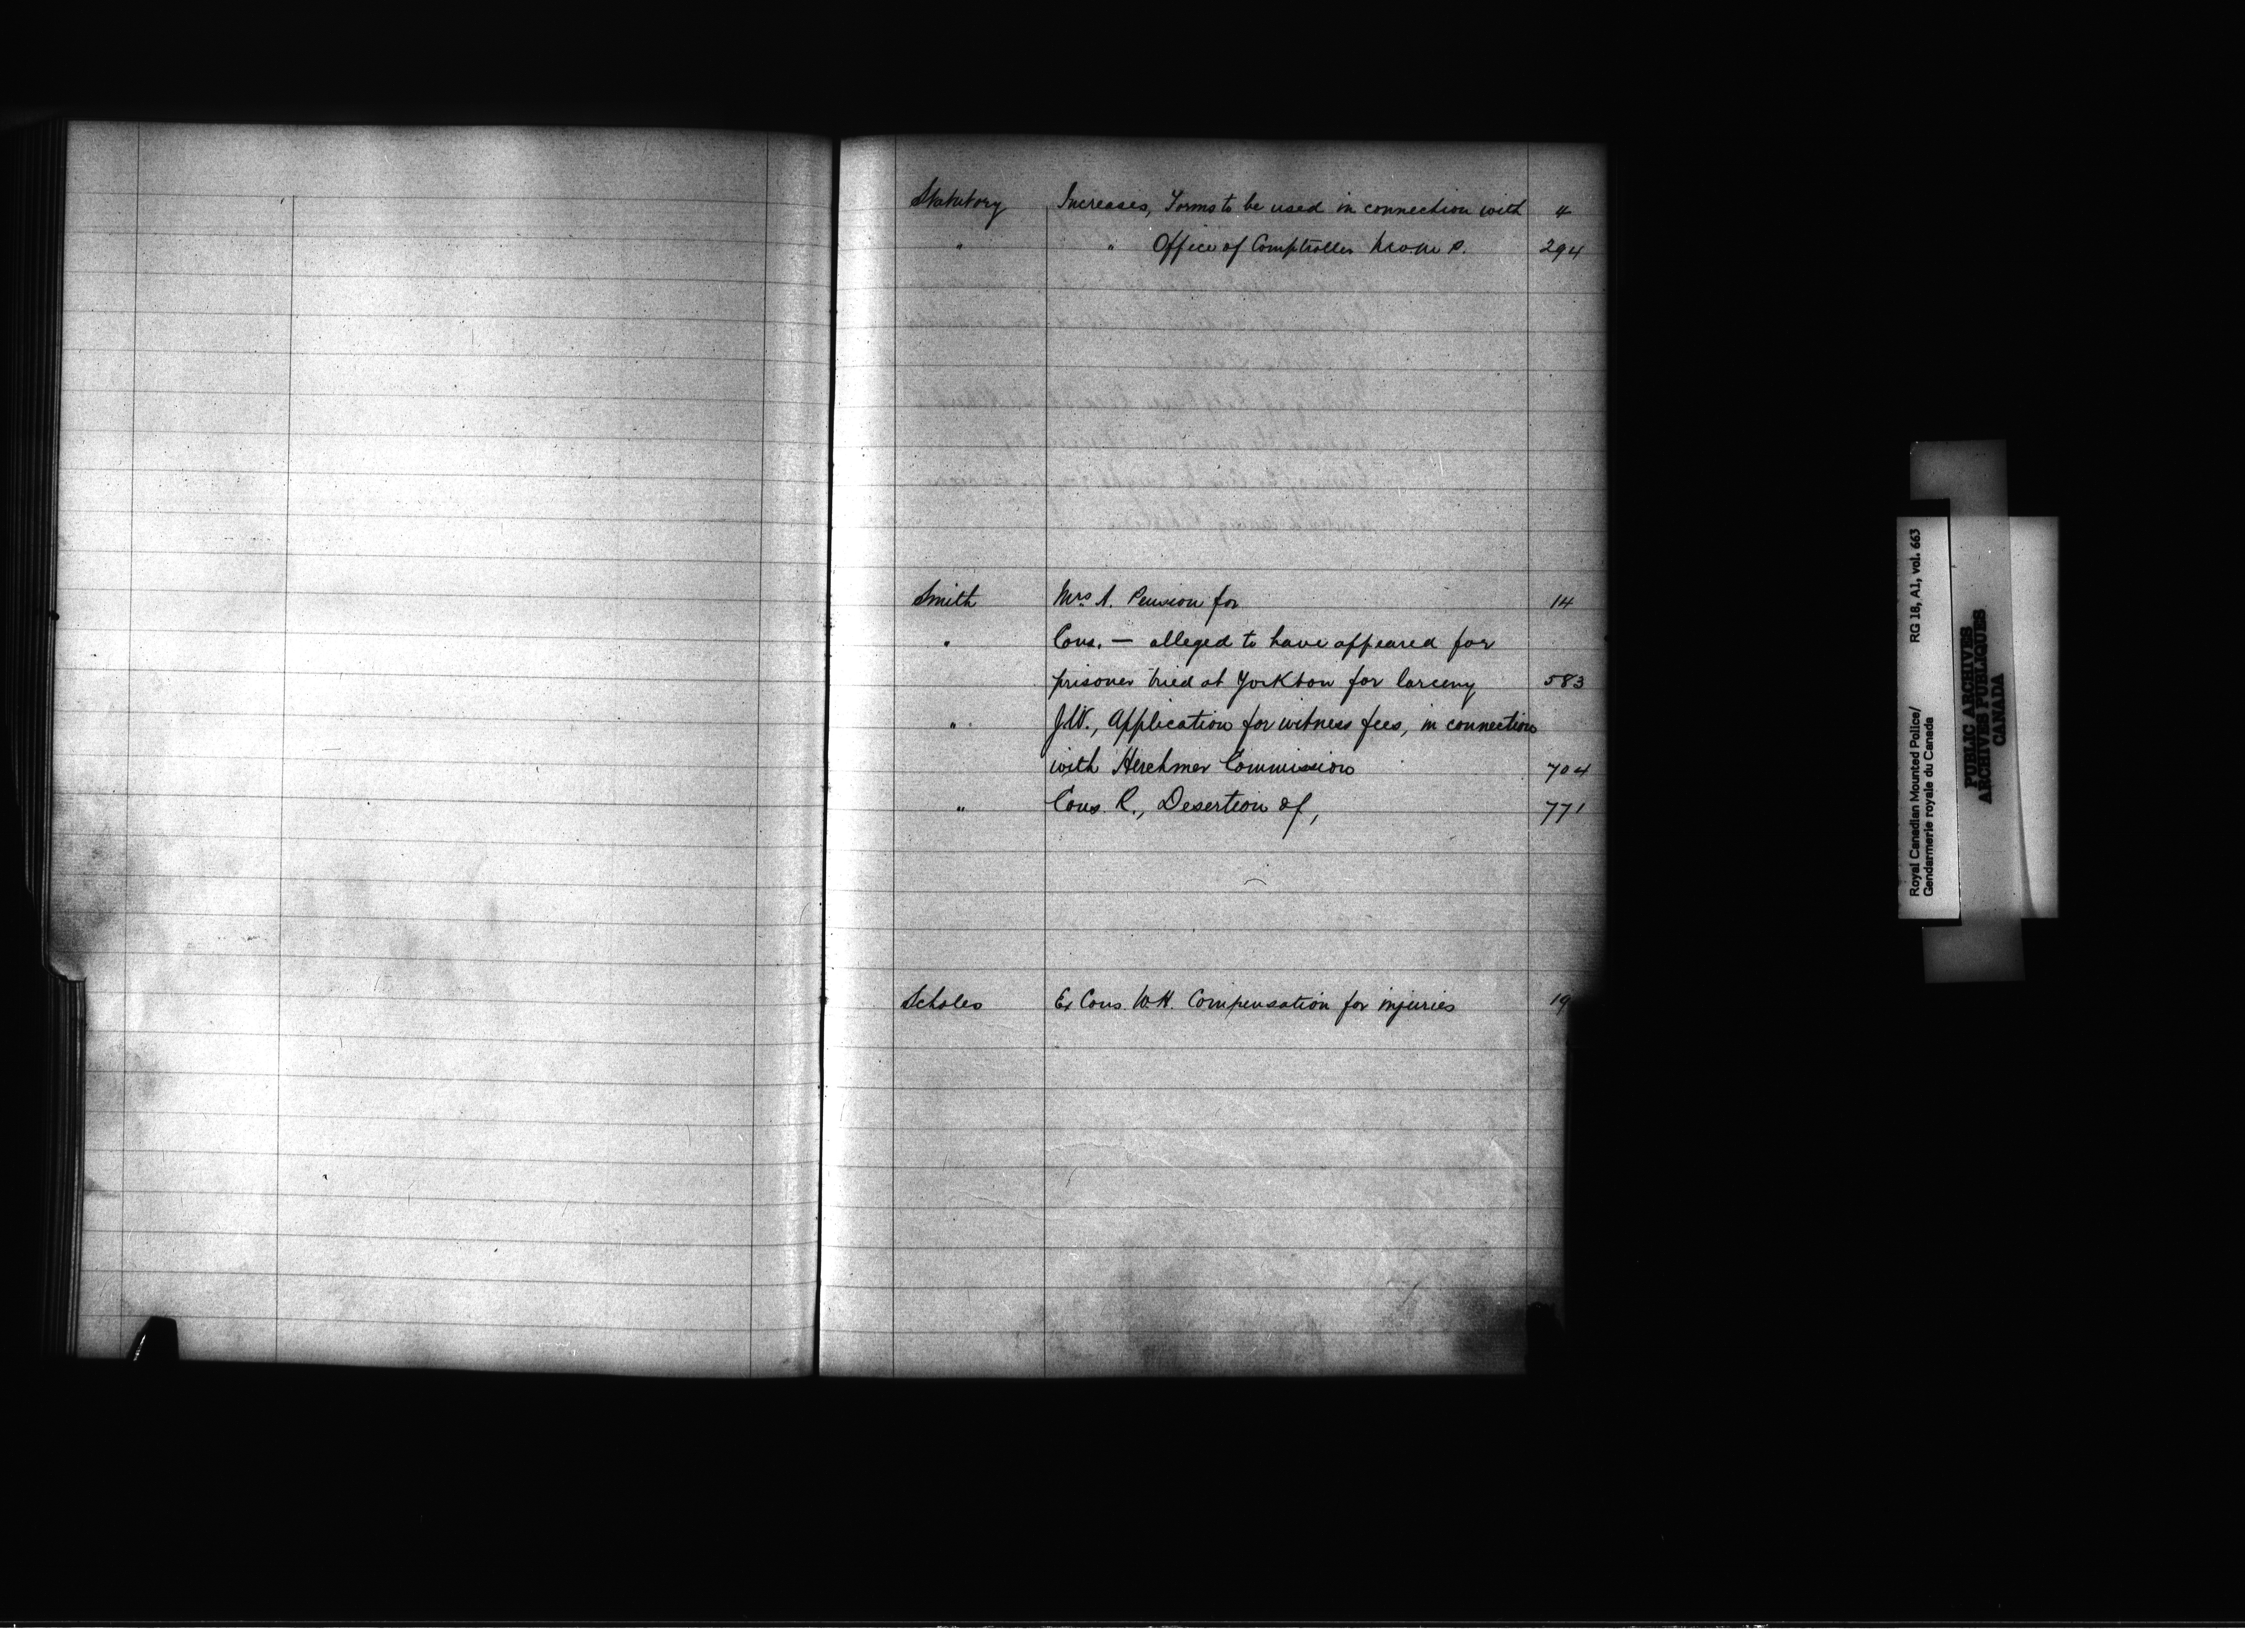 Statutory Increases, Forms to be used in connection with 4
" " Office of Comptroller N.W.M.P. 294
Smith Mrs A. Pension for 14
" Cons. — alleged to have appeared for
prisoner tried at Yorkton for larceny 583
" J.W., Application for witness fees, in connection
with Herchmer Commission 704
" Cons. R., Desertion of, 771
Scholes Ex Cons. W.H. Compensation for injuries 19
Royal Canadian Mounted Police/ RG 18, A1, vol. 663
Gendarmerie royale du Canada
PUBLIC ARCHIVES
ARCHIVES PUBLIQUES
CANADA